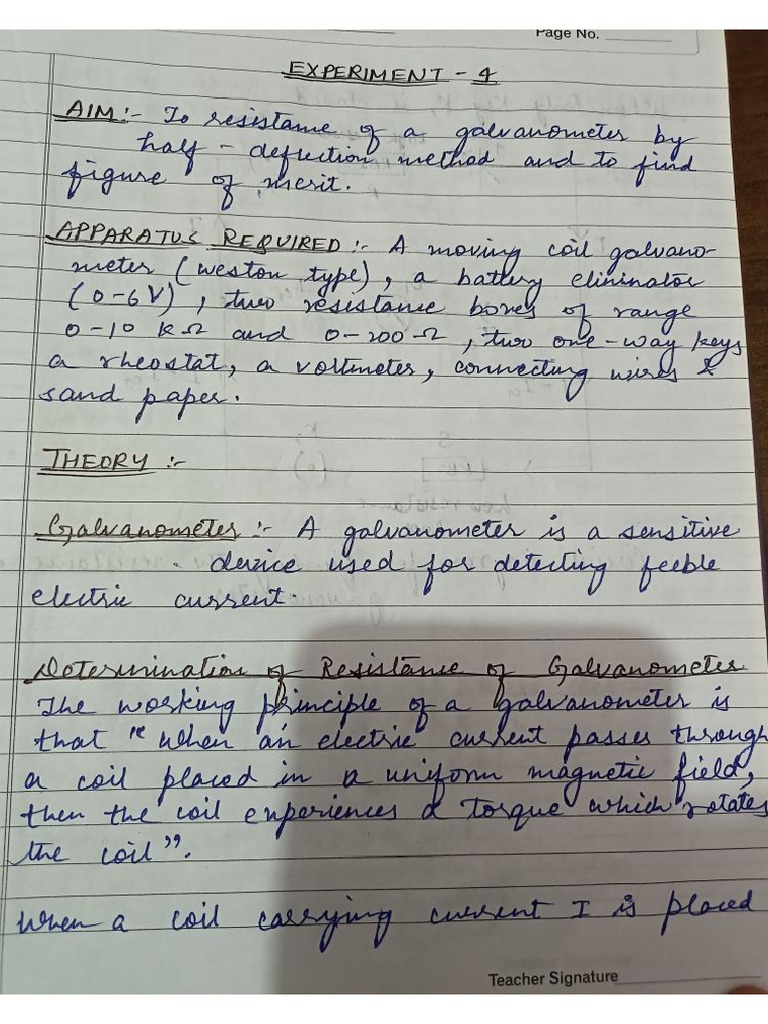 Page No.
EXPERIMENT - 4
AIM:- To resistame of a galvanometer by
half - deflection method and to find
figure of merit.
APPARATUS REQUIRED :- A moving coil galvano-
meter (weston type), a battery eliminator
(0-6 V), two resistance boxes of range
0-10 KΩ and 0-200 Ω, two one-way keys
a rheostat, a voltmeter, connecting wires &
sand paper.
THEORY :-
Galvanometer :- A galvanometer is a sensitive
device used for detecting feeble
electric current.
Determination of Resistance of Galvanometer
The working principle of a galvanometer is
that "when an electric current passes through
a coil placed in a uniform magnetic field,
then the coil experiences a torque which rotates
the coil".
When a coil carrying current I is placed
Teacher Signature